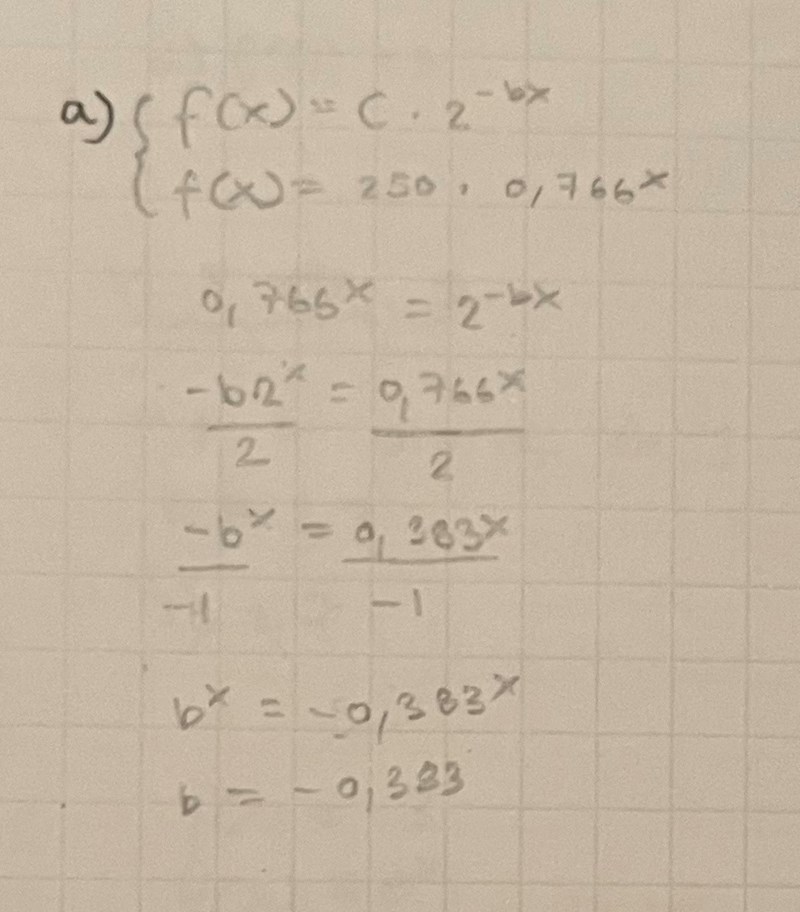 a) { f(x) = C · 2^-bx
{ f(x) = 250 · 0,766^x
0,766^x = 2^-bx
-b2^x / 2 = 0,766^x / 2
-b^x / -1 = 0,383^x / -1
b^x = -0,383^x
b = -0,383